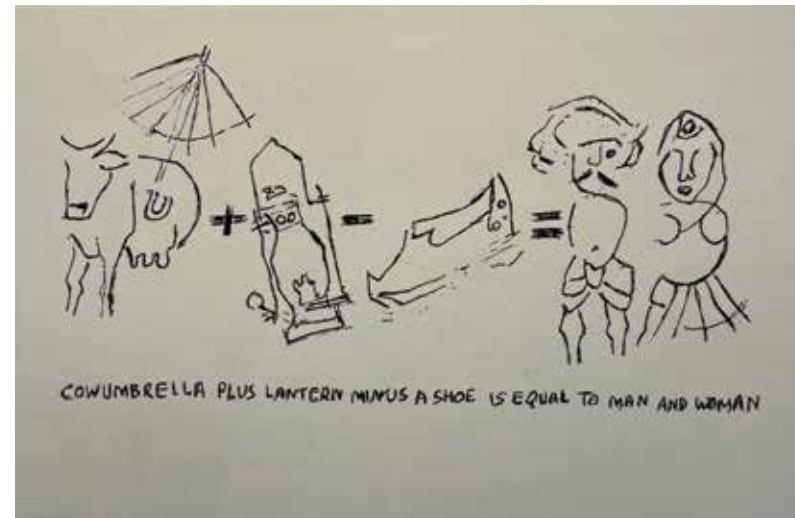 COWUMBRELLA PLUS LANTERN MINUS A SHOE IS EQUAL TO MAN AND WOMAN